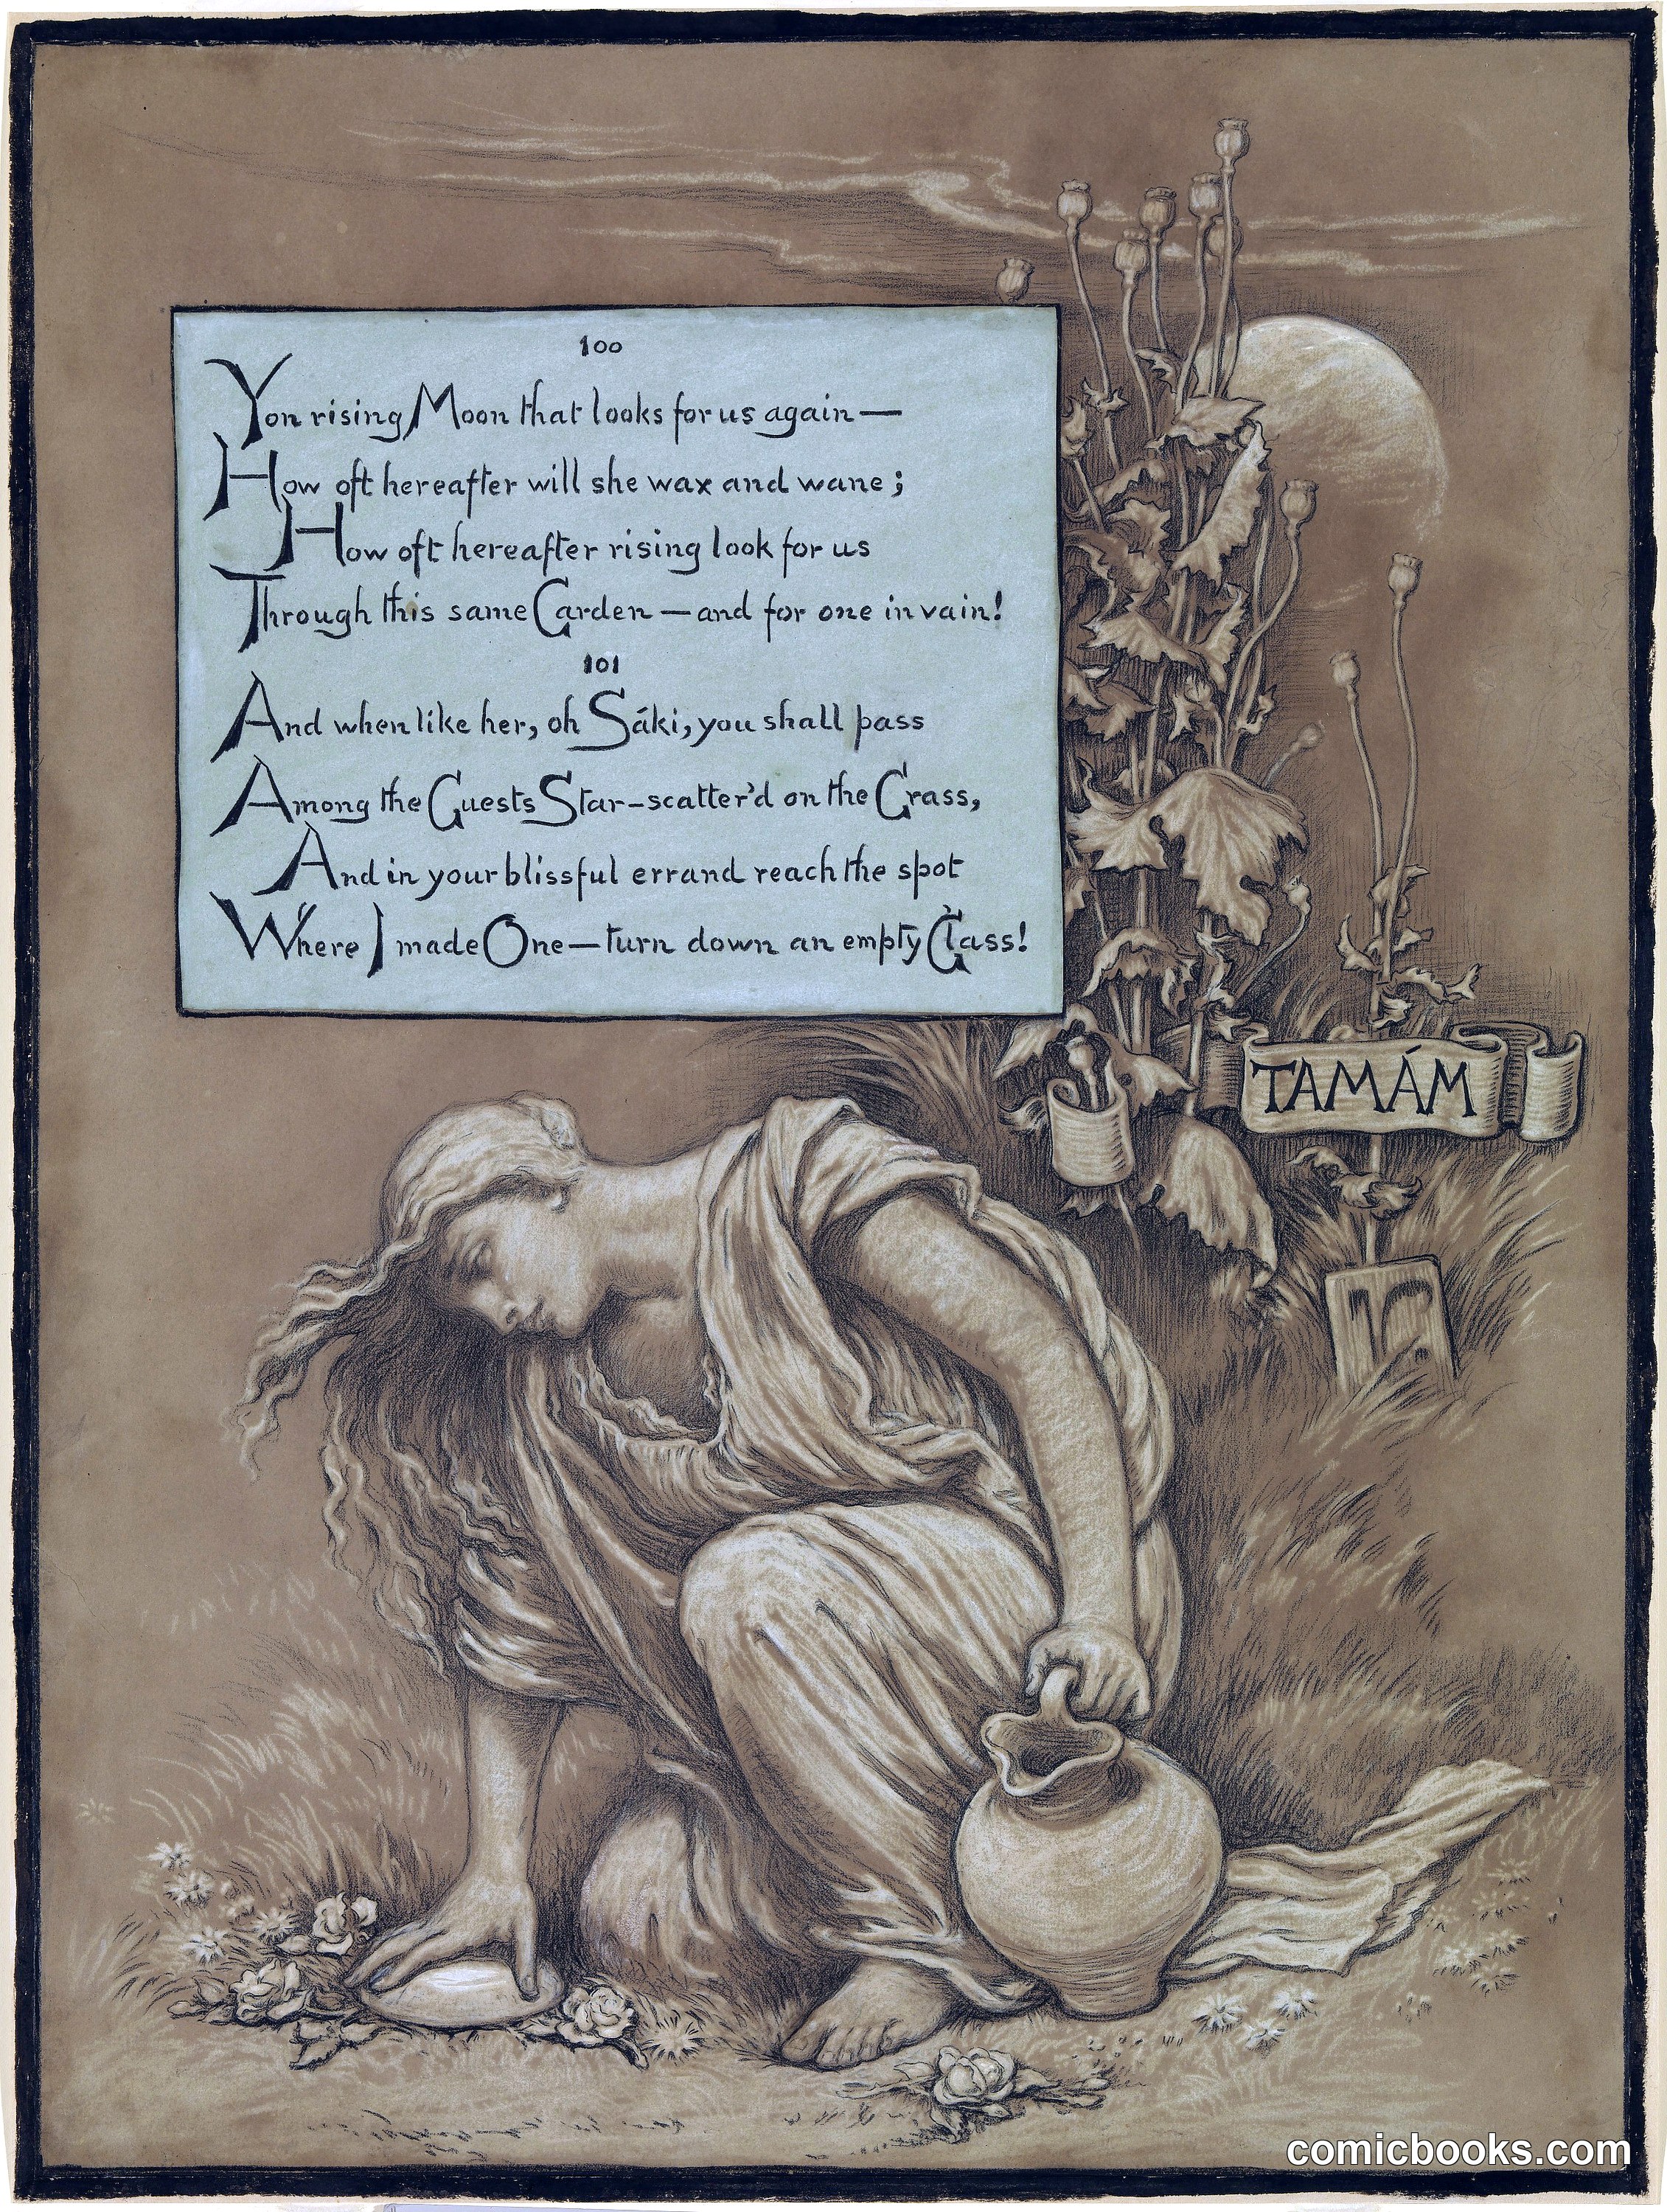 100
Yon rising Moon that looks for us again —
How oft hereafter will she wax and wane ;
How oft hereafter rising look for us
Through this same Garden — and for one in vain!
101
And when like her, oh Sáki, you shall pass
Among the Guests Star-scatter'd on the Grass,
And in your blissful errand reach the spot
Where I made One — turn down an empty Glass!
TAMÁM
comicbooks.com